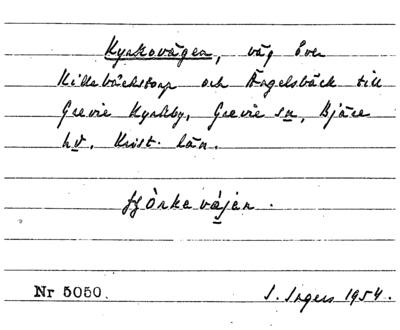 Kyrkovägen, väg över
Killebäckstorp och Ängelsbäck till
Grevie Kyrkby, Grevie sn, Bjäre
hd. Krist. län.
Nr 5050.
I. Ingers 1954.